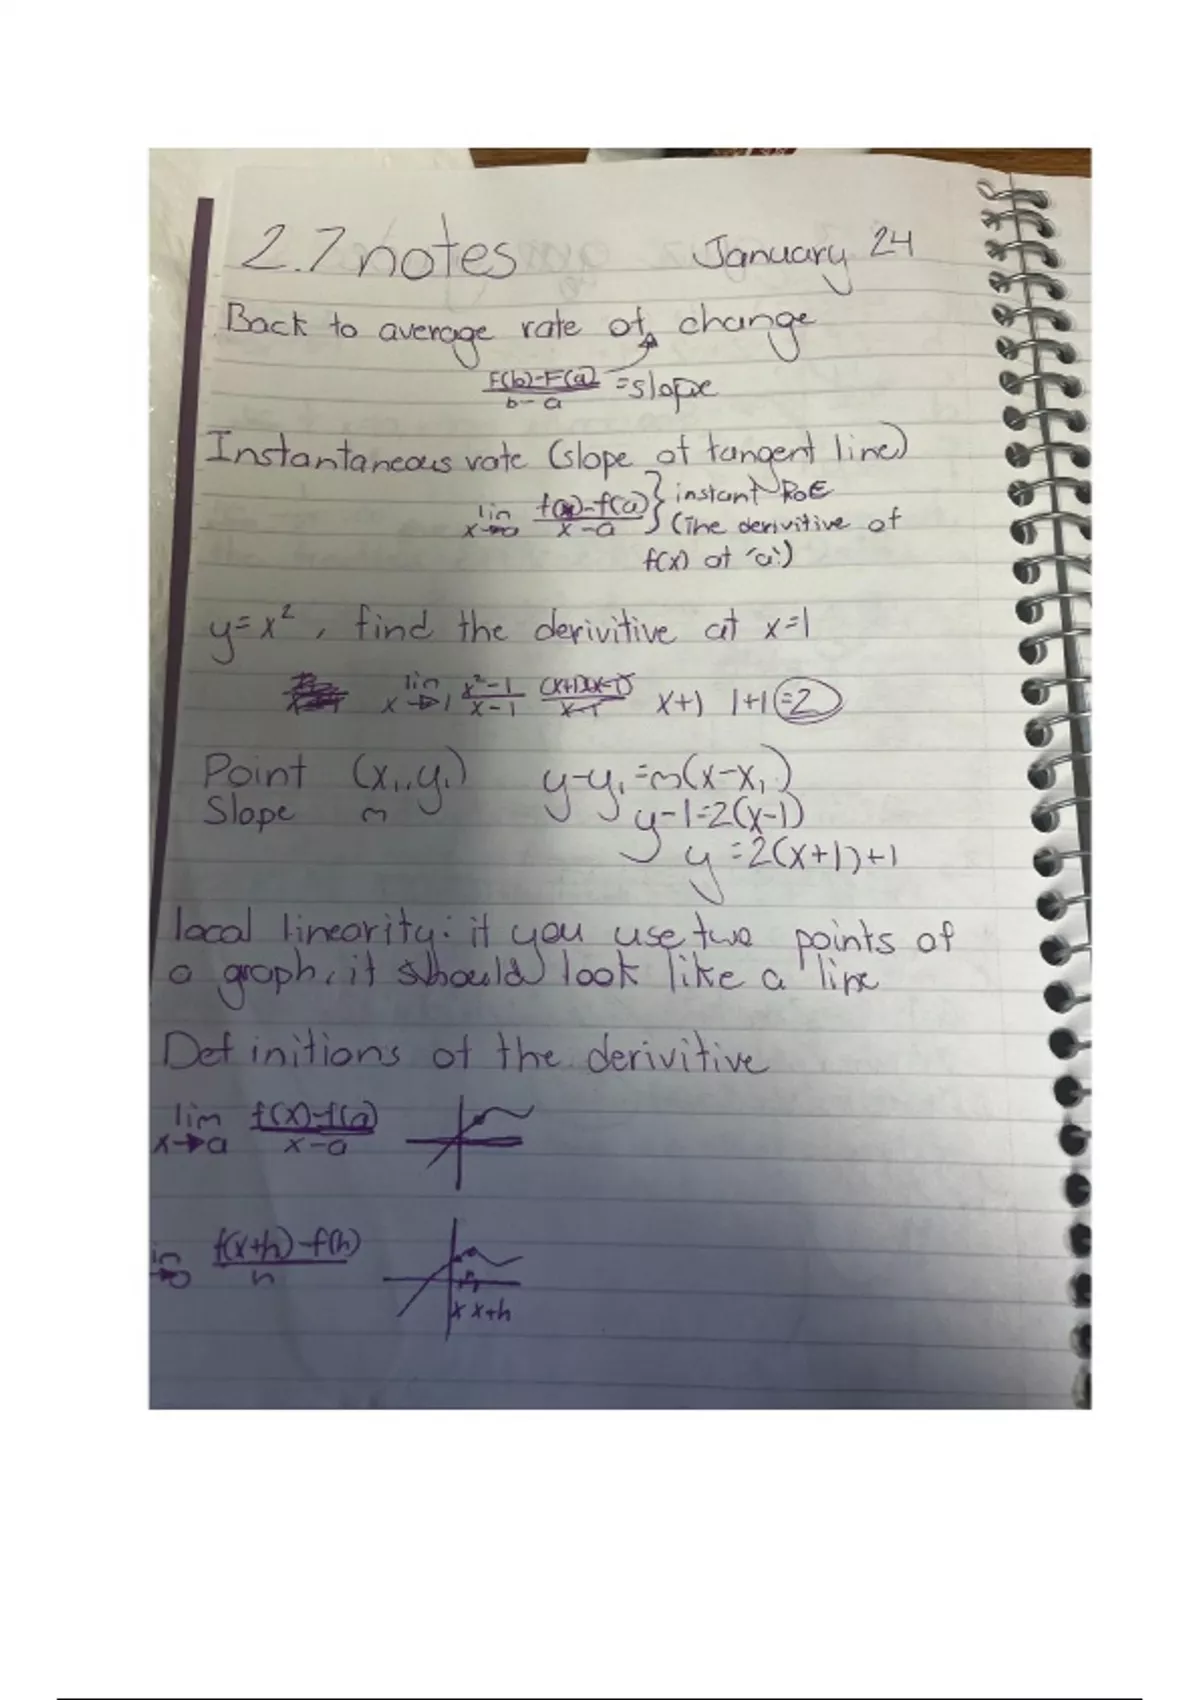 2.7 notes January 24
Back to average rate of change
F(b)-F(a) / b-a =slope
Instantaneous rate (slope of tangent line)
lim x→a f(x)-f(a) / x-a } instant RoC
(The derivitive of
f(x) at 'a')
y=x², find the derivitive at x=1
lim x→1 x²-1 / x-1 (x+1)(x-1) / x-1 x+1 1+1=2
Point (x₁,y₁) y-y₁=m(x-x₁)
Slope m y-1=2(x-1)
y=2(x+1)+1
local linearity: if you use two points of
a graph, it should look like a line
Definitions of the derivitive
lim x→a f(x)-f(a) / x-a
f(x+h)-f(h) / h
x x+h